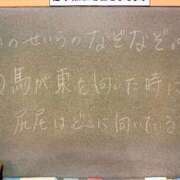 のせいうのなぞなぞ
馬が東を向いた時に
尻尾はどこに向いている